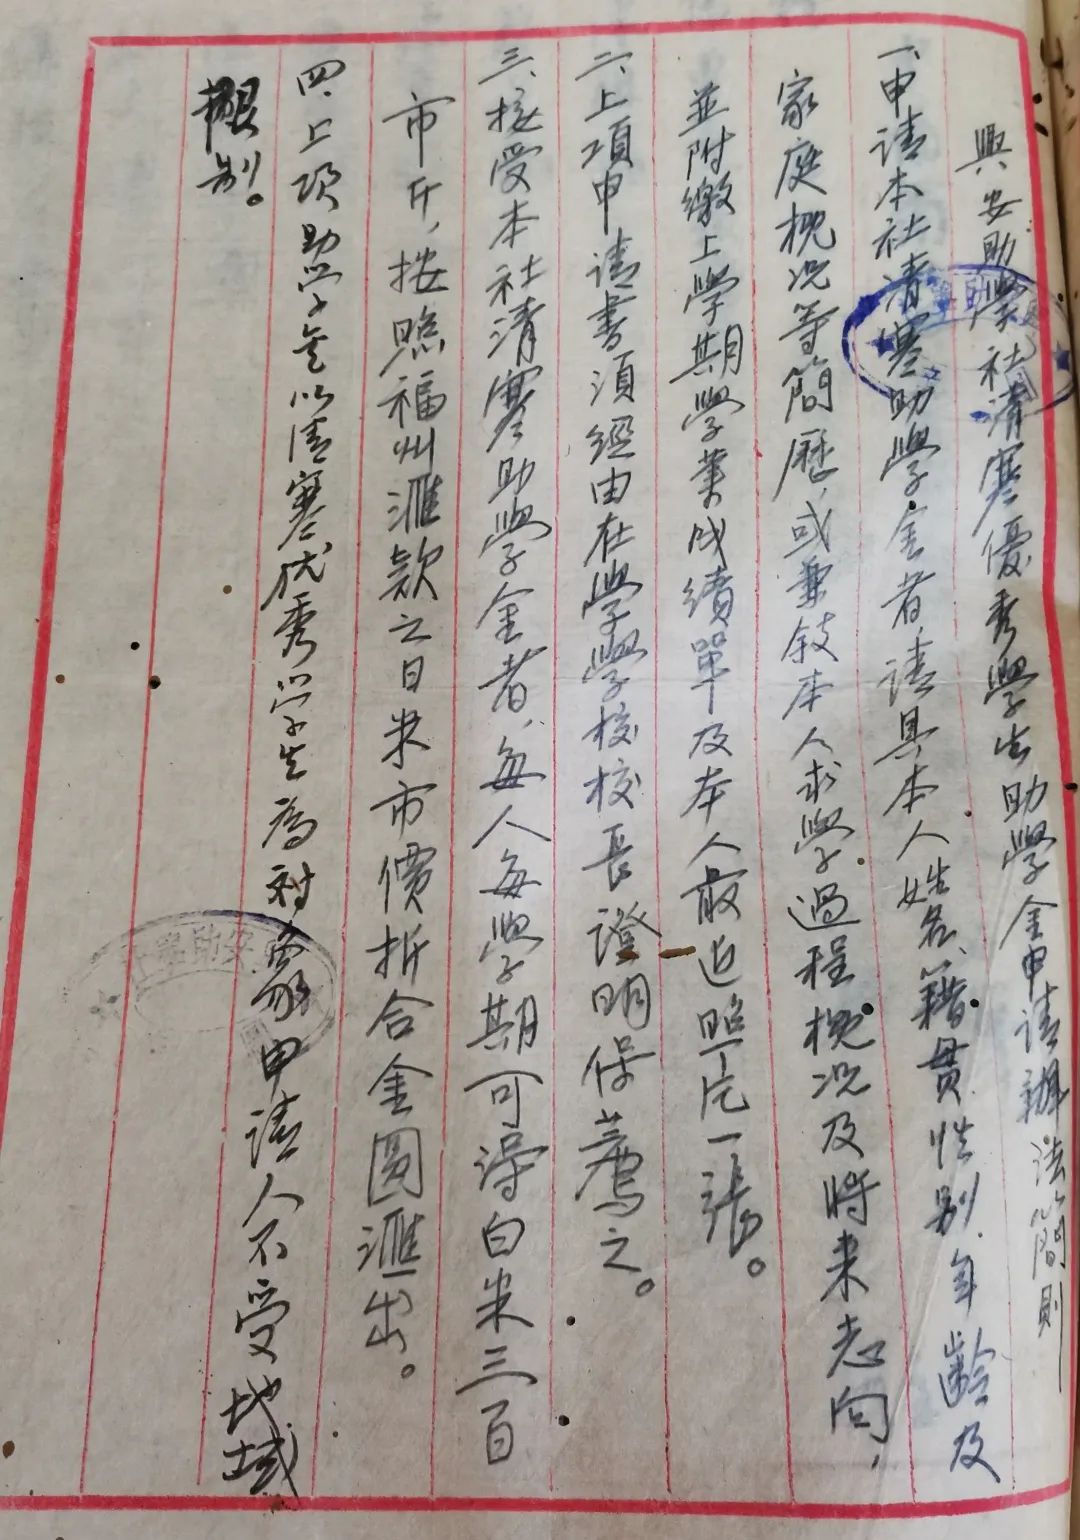 興安助學社清寒優秀學生助學金申請辦法簡則
一、申请本社清寒助學金者,请具本人姓名、籍貫、性别、年齡及
家庭概况等簡歷,或兼敍本人求學過程概况及將来志向,
並附繳上學期學業成績單及本人最近照片一張。
二、上項申请書須經由在學學校校長證明保薦之。
三、核受本社清寒助學金者,每人每學期可得白米三百
市斤,按照福州滙款之日米市價折合金圆滙出。
四、上项助学金以清寒优秀学生為对象申请人不受地域
限制。
安助學